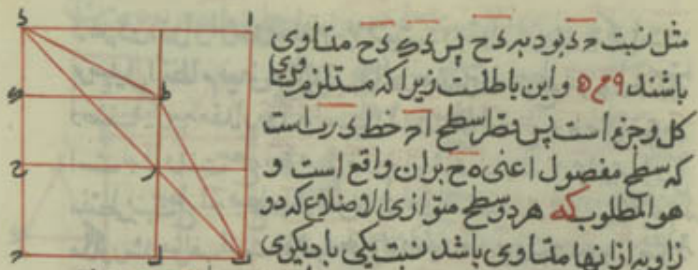 مثل نسبت حد بود به دح پس دک دح متساوی
باشند ٩م٥ و این باطلست زیرا که مستلزم تساوی
کل و جزء است پس قطر سطح اح خط در ب است
که سطح مفصول اعنی ه ح بران واقع است و
هو المطلوب که هر دو سطح متوازی الاضلاع که دو
زاویه از انها متساوی باشد نسبت یکی با دیگری